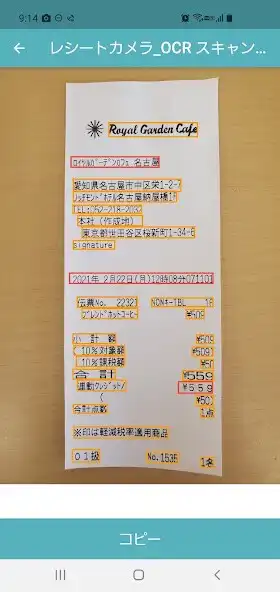 9:14
レシートカメラ_OCR スキャン...
Royal Garden Cafe
ロイヤルガーデンカフェ 名古屋
愛知県名古屋市中区栄1-2-7
リッチモンドホテル名古屋納屋橋1F
TEL:052-218-2032
本社（作成地）
東京都世田谷区桜新町1-34-6
signature
2021年 2月22日(月)12時08分0711
伝票No. 22321 NONキ-TBL 1F
ブレンドホットコーヒー ¥509
小 計 額 ¥509
( 10%対象額 ¥509)
( 10%課税額 ¥50
合 計 ¥559
連動クレジット/ ¥559
( ¥50)
合計点数 1点
※印は軽減税率適用商品
01扱 No.1535 1名
コピー